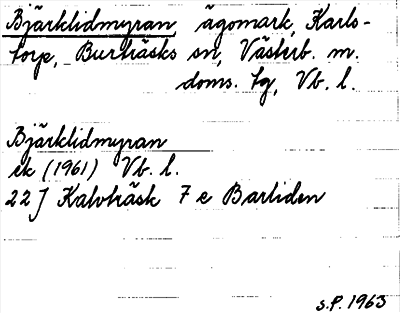 Bjärklidmyran, ägomark, Karls-
torp, Burträsks sn, Västerb. m.
doms. tg, Vb. l.
Bjärklidmyran
ek (1961) Vb. l.
22J Kalvträsk 7 e Barliden
S.P. 1963